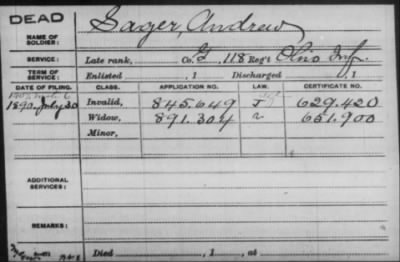 DEAD
NAME OF SOLDIER: Sager, Andrew
SERVICE: Late rank, Co. G, 118 Reg't Ohio Inf.
TERM OF SERVICE: Enlisted , 1 Discharged , 1
DATE OF FILING. CLASS. APPLICATION NO. LAW. CERTIFICATE NO.
Invalid, 845.649 J 629.420
1890, July 30 Widow, 891.304 651.900
Minor,
ADDITIONAL SERVICES:
REMARKS:
Died , 1 , at